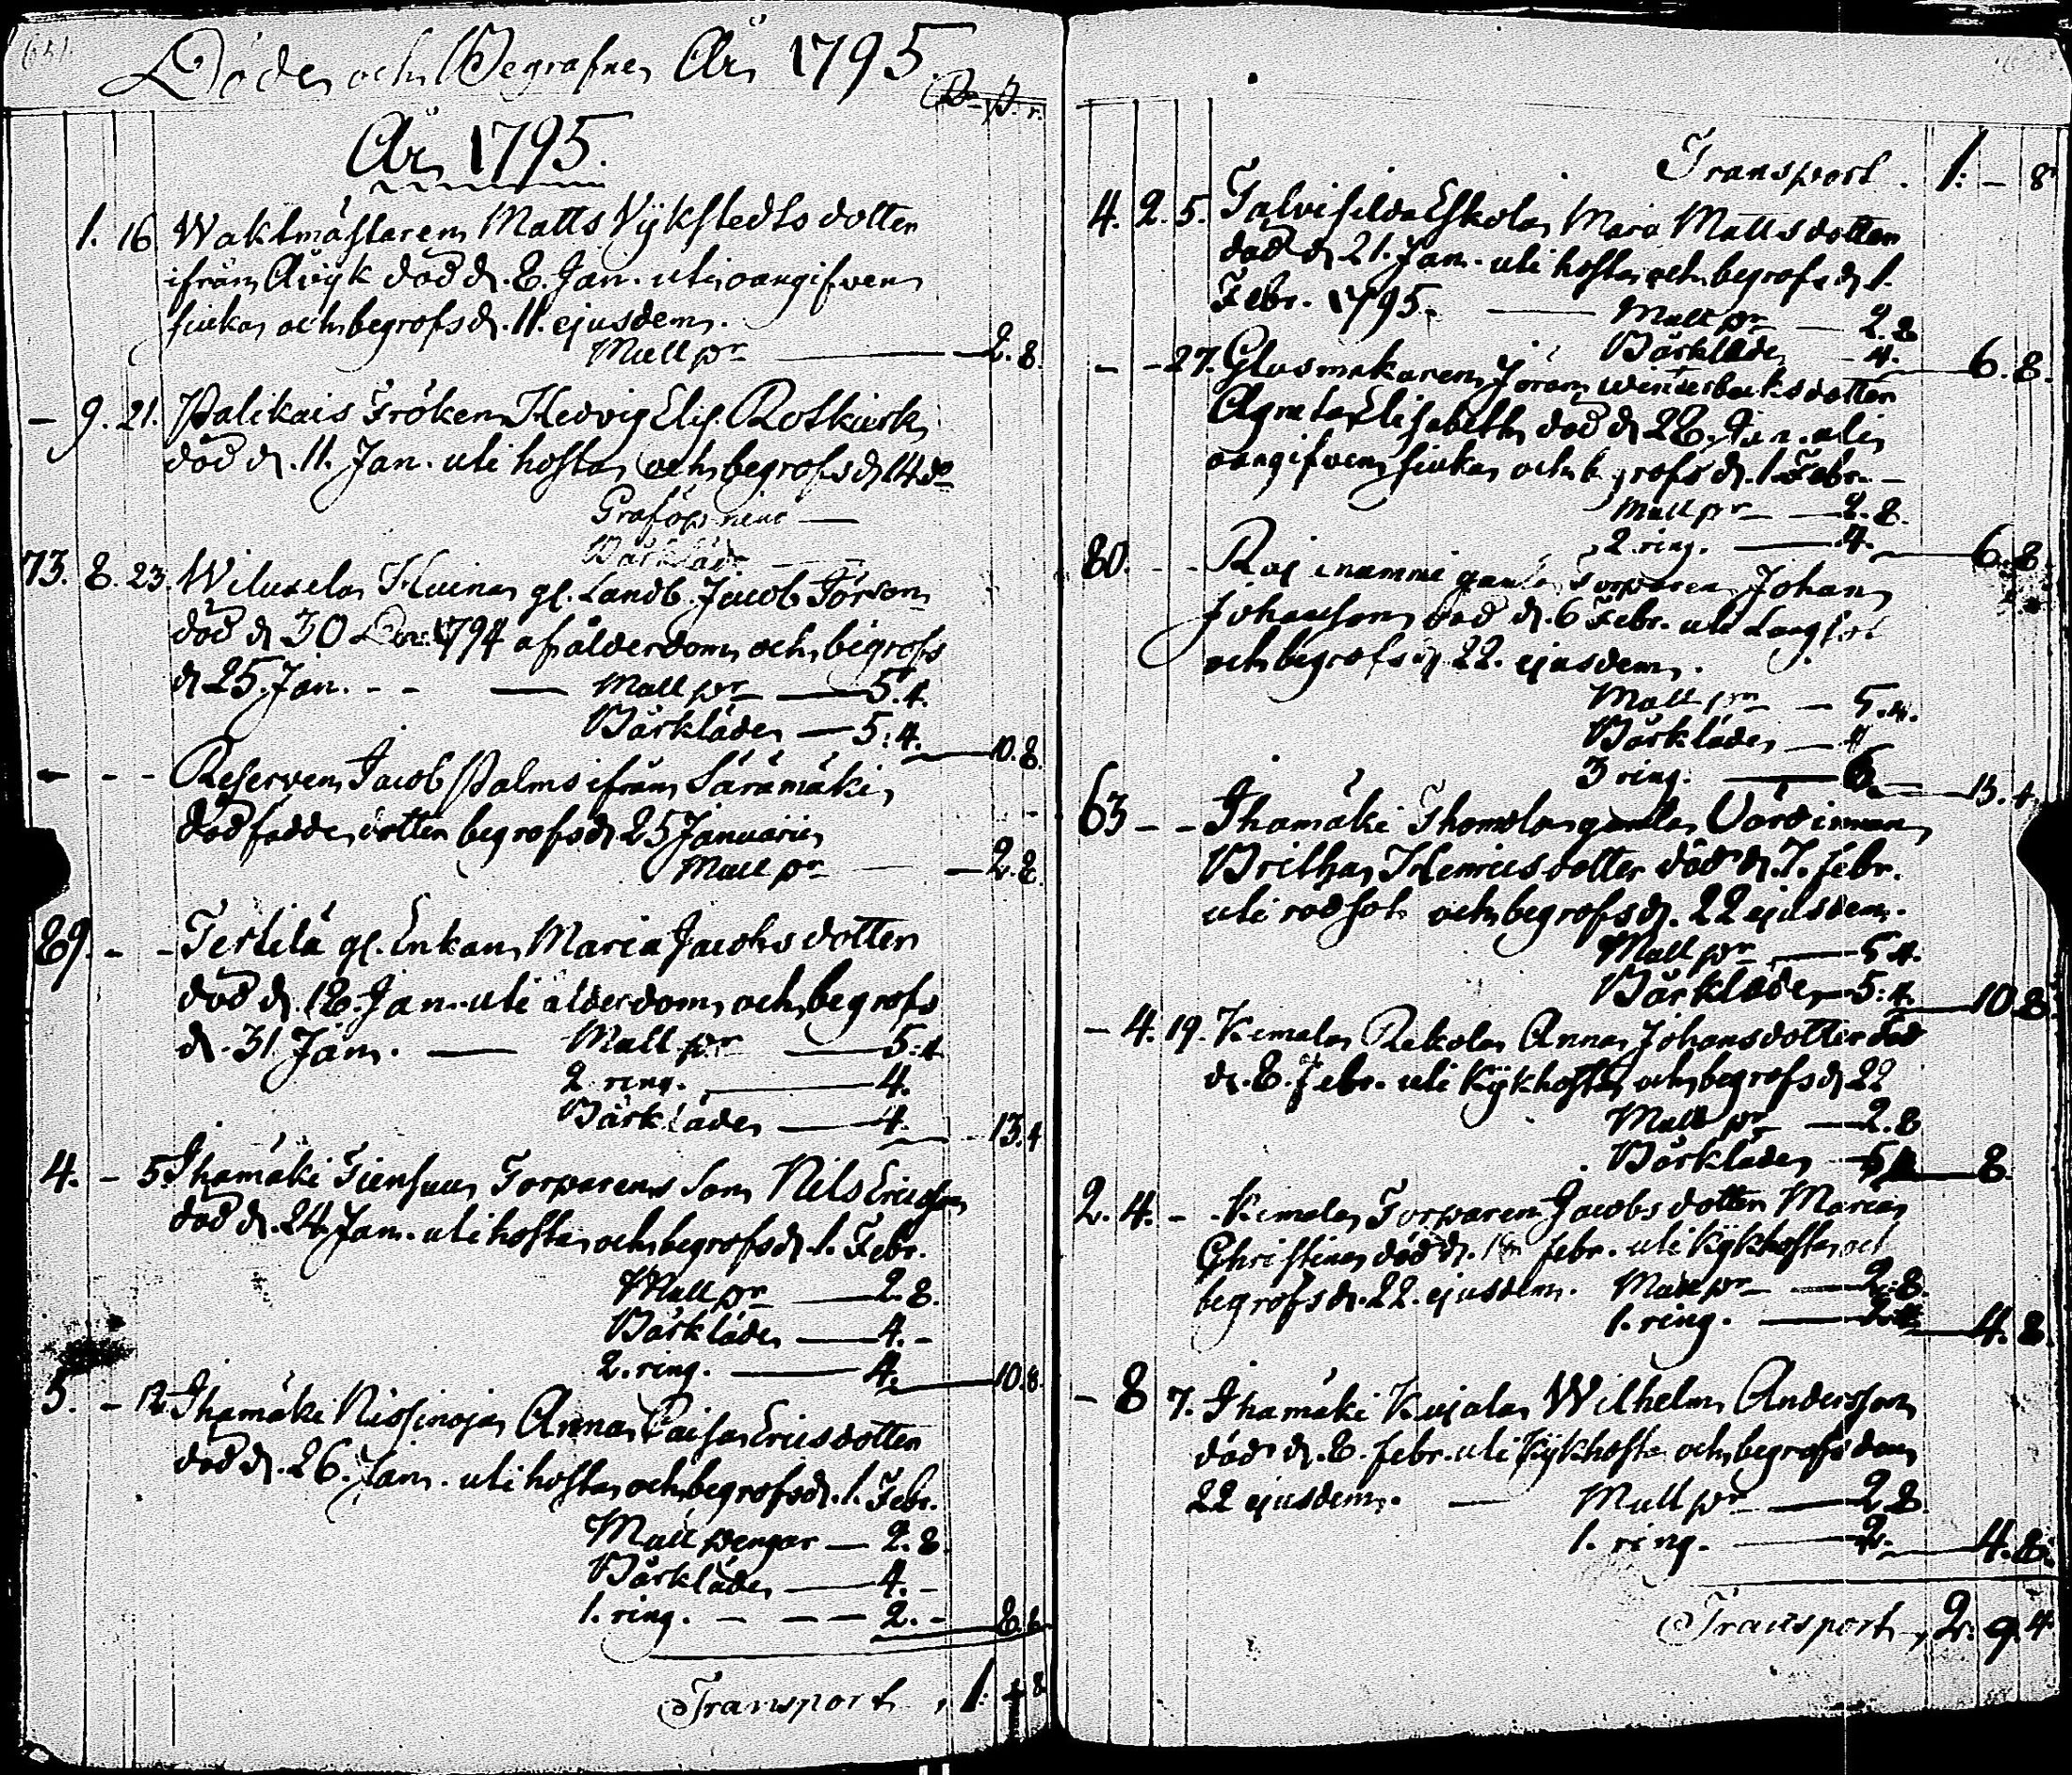 651.
Döde och Begrafne År 1795.
Rr. ß. r.
År 1795.
1. 16 Waktmästaren Matts Vykstedts dotter
ifrån Avijk död d. 8. Jan. uti oangifven
siuka och begrofs d. 11. ejusdem.
Mull pr — 2. 8.
- 9. 21. Palikais Fröken Hedvig Elis. Rotkirch
död d. 11. Jan. uti hosta och begrofs d. 14 do
Graföpning —
Bårkläde —
73. 8. 23. Wiluxela Huina gl. Landb. Jacob Jörson
död d. 30 Dec. 1794 af ålderdom och begrofs
d. 25. Jan. - - — Mull pr — 5. 4.
Bårkläde — 5. 4. — 10. 8.
- - - Reserven Jacob Palms ifrån Säramäki
död födde dotter begrofs d. 25 Januarii
Mull pr — 2. 8.
89. - - Tertilä gl. Enkan Maria Jacobs dotter
död d. 18. Jan. uti ålderdom och begrofs
d. 31. Jan. — Mull pr — 5. 4.
2 ring. — 4.
Bårkläde — 4. — 13. 4
4. - 5. Ihamäki Torparens Son Nils Ericsson
död d. 24. Jan. uti hosta och begrofs d. 1. Febr.
Mull pr — 2. 8.
Bårkläde — 4. -
2. ring. — 4. — 10. 8.
5. - 12. Ihamäki Nissinoja Anna Caisa Ericsdotter
död d. 26. Jan. uti hosta och begrofs d. 1. Febr.
Mull pengar — 2. 8.
Bårkläde — 4. -
1. ring. - — — 2. - 8. 8.
Transport, 1: 8
Transport. 1: - 8
4. 2. 5. Talvisilda Eskola Maria Mattsdotter
död d. 21. Jan. uti hosta och begrofs d. 1.
Febr. 1795. — Mull pr — 2. 8
Bårkläde - 4. — 6. 8.
- - 27. Glasmakaren Jöran Winterbacks dotter
Agneta Elisabeth död d. 28. Jan. uti
oangifven siuka och begrofs d. 1. Febr. -
Mull pr — 2. 8.
2 ring. — 4. — 6. 8.
80. - - gamle Torparen Johan
Johansson död d. 6 Febr. uti Lungsot
och begrofs d. 22. ejusdem.
Mull pr — 5. 4.
Bårkläde — 4
3 ring. — 6. — 15. 4.
63 - - Ihamäki Thomola gamla Värdinnan
Britha Henricsdotter död d. 7. febr.
uti rodsot och begrofs d. 22 ejusdem.
Mull pr — 5 4.
Bårkläde — 5. 4. — 10. 8.
- 4. 19. Kemola Rekola Anna Johansdotter död
d. 8. febr. uti Kykhosta och begrofs d. 22
Mull pr — 2. 8
Bårkläde — 8.
2. 4. - Kemola Torparen Jacobs dotter Maria
Christina död d. febr. uti Kykhosta och
begrofs d. 22. ejusdem. Mull pr — 2. 8.
1. ring. — 4. 8.
- 8 7. Ihamäki Kujala Wilhelm Andersson
död d. 8. febr. uti Kykhosta och begrofs den
22 ejusdem. — Mull pr — 2 8.
1. ring. — 2. — 4. 8.
Transport, 2. 9. 4